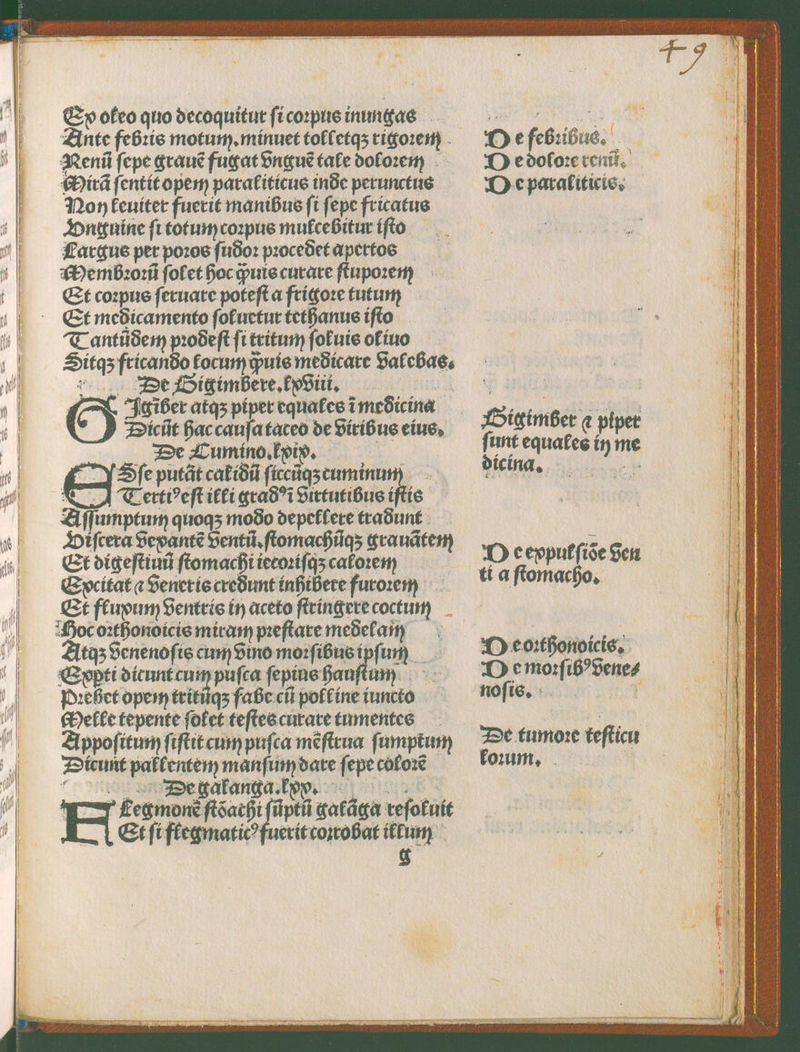 49
Ex oleo quo decoquitur ſi coꝛpus inungas
Ante febꝛis motum. minuet tolletqꝫ rigoꝛem
Renū ſepe grauē fugat vnguē tale doloꝛem
Mirā ſentit opem paraliticus inde perunctus
Non leuiter fuerit manibus ſi ſepe fricatus
Vnguine ſi totum coꝛpus mulcebitur iſto
Largus per poꝛos ſudoꝛ pꝛocedet apertos
Membꝛoꝛū ſolet hoc q̄ꝫuis curare ſtupoꝛem
Et coꝛpus ſeruare poteſt a frigoꝛe tutum
Et medicamento ſoluetur tethanus iſto
Tantūdem pꝛodeſt ſi tritum ſoluis oliuo
Sitqꝫ fricando locum q̄ꝫuis medicare valebas.
De Zigimbere. lxviii.
GIgīber atqꝫ piper equales ī medicina
Dicūt hac cauſa taceo de viribus eius.
De Cumino. lxix.
ESſe putāt calidū ſiccūqꝫ cuminum
Tertiꝰ eſt illi gradꝰ ī virtutibus iſtis
Aſſumptum quoqꝫ modo depellere tradunt
Viſcera vexantē ventū. ſtomachūqꝫ grauātem
Et digeſtiuū ſtomachi iecoꝛiſqꝫ caloꝛem
Excitat ⁊ veneris credunt inhibere furoꝛem
Et fluxum ventris in aceto ſtringere coctum
Hoc oꝛthonoicis miram pꝛeſtare medelam
Atqꝫ venenoſis cum vino moꝛſibus ipſum
Expti dicunt cum puſca ſepius hauſtum
Pꝛebet opem tritūqꝫ fabe cū polline iuncto
Melle tepente ſolet teſtes curare tumentes
Appoſitum ſiſtit cum puſca mēſtrua ſumptum
Dicunt pallentem manſum dare ſepe coloꝛē
De galanga. lxx.
FLegmonē ſtōachi ſūptū galāga reſoluit
Et ſi flegmaticꝰ fuerit coꝛrobat illum
g
De febꝛibus.
De doloꝛe renū.
De paraliticis.
Zigimber ⁊ piper
ſunt equales in me
dicina.
De expulſiōe ven
ti a ſtomacho.
De oꝛthonoicis.
De moꝛſibꝰ vene⸗
noſis.
De tumoꝛe teſticu
loꝛum.